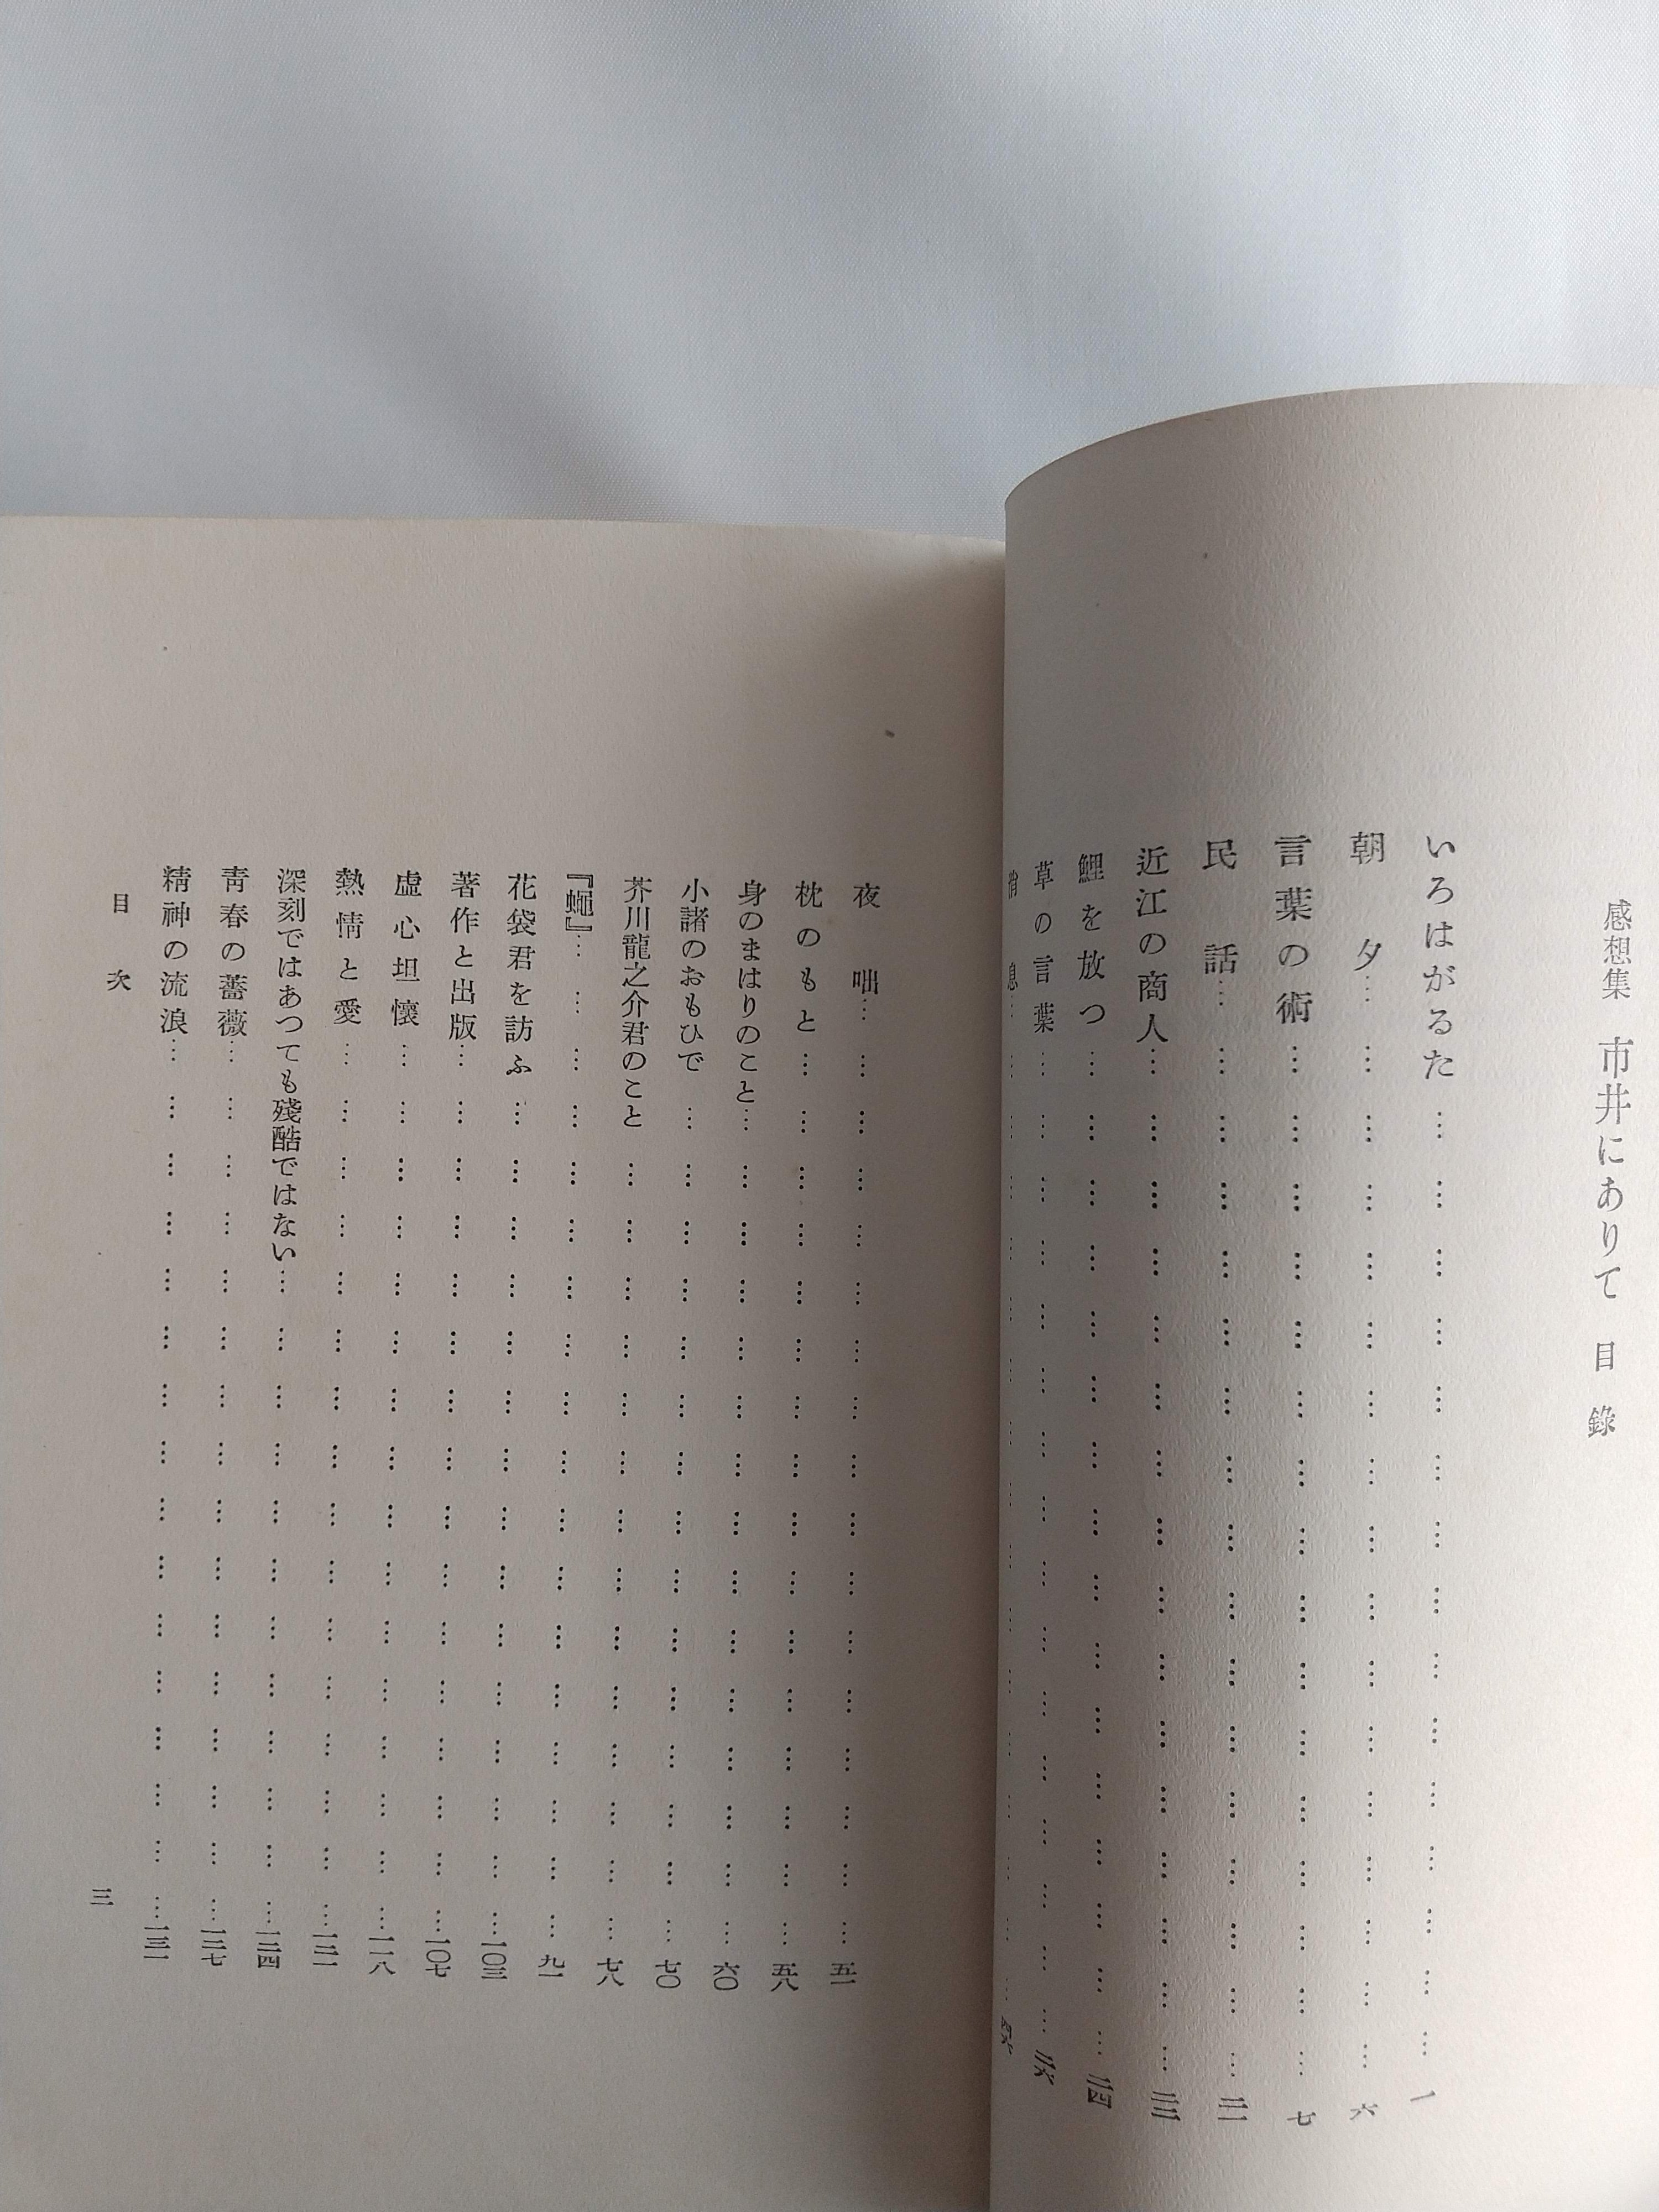 感想集 市井にありて 目錄
いろはがるた………一
朝夕………六
言葉の術………七
民話………二一
近江の商人………二三
鯉を放つ………二四
草の言葉………二六
消息………
夜咄………五一
枕のもと………五八
身のまはりのこと………六〇
小諸のおもひで………七〇
芥川龍之介君のこと………七八
『蠅』………九一
花袋君を訪ふ………一〇三
著作と出版………一〇七
虚心坦懷………一一八
熱情と愛………一二一
深刻ではあつても殘酷ではない………一二四
靑春の薔薇………一二七
精神の流浪………一三一
目次 三